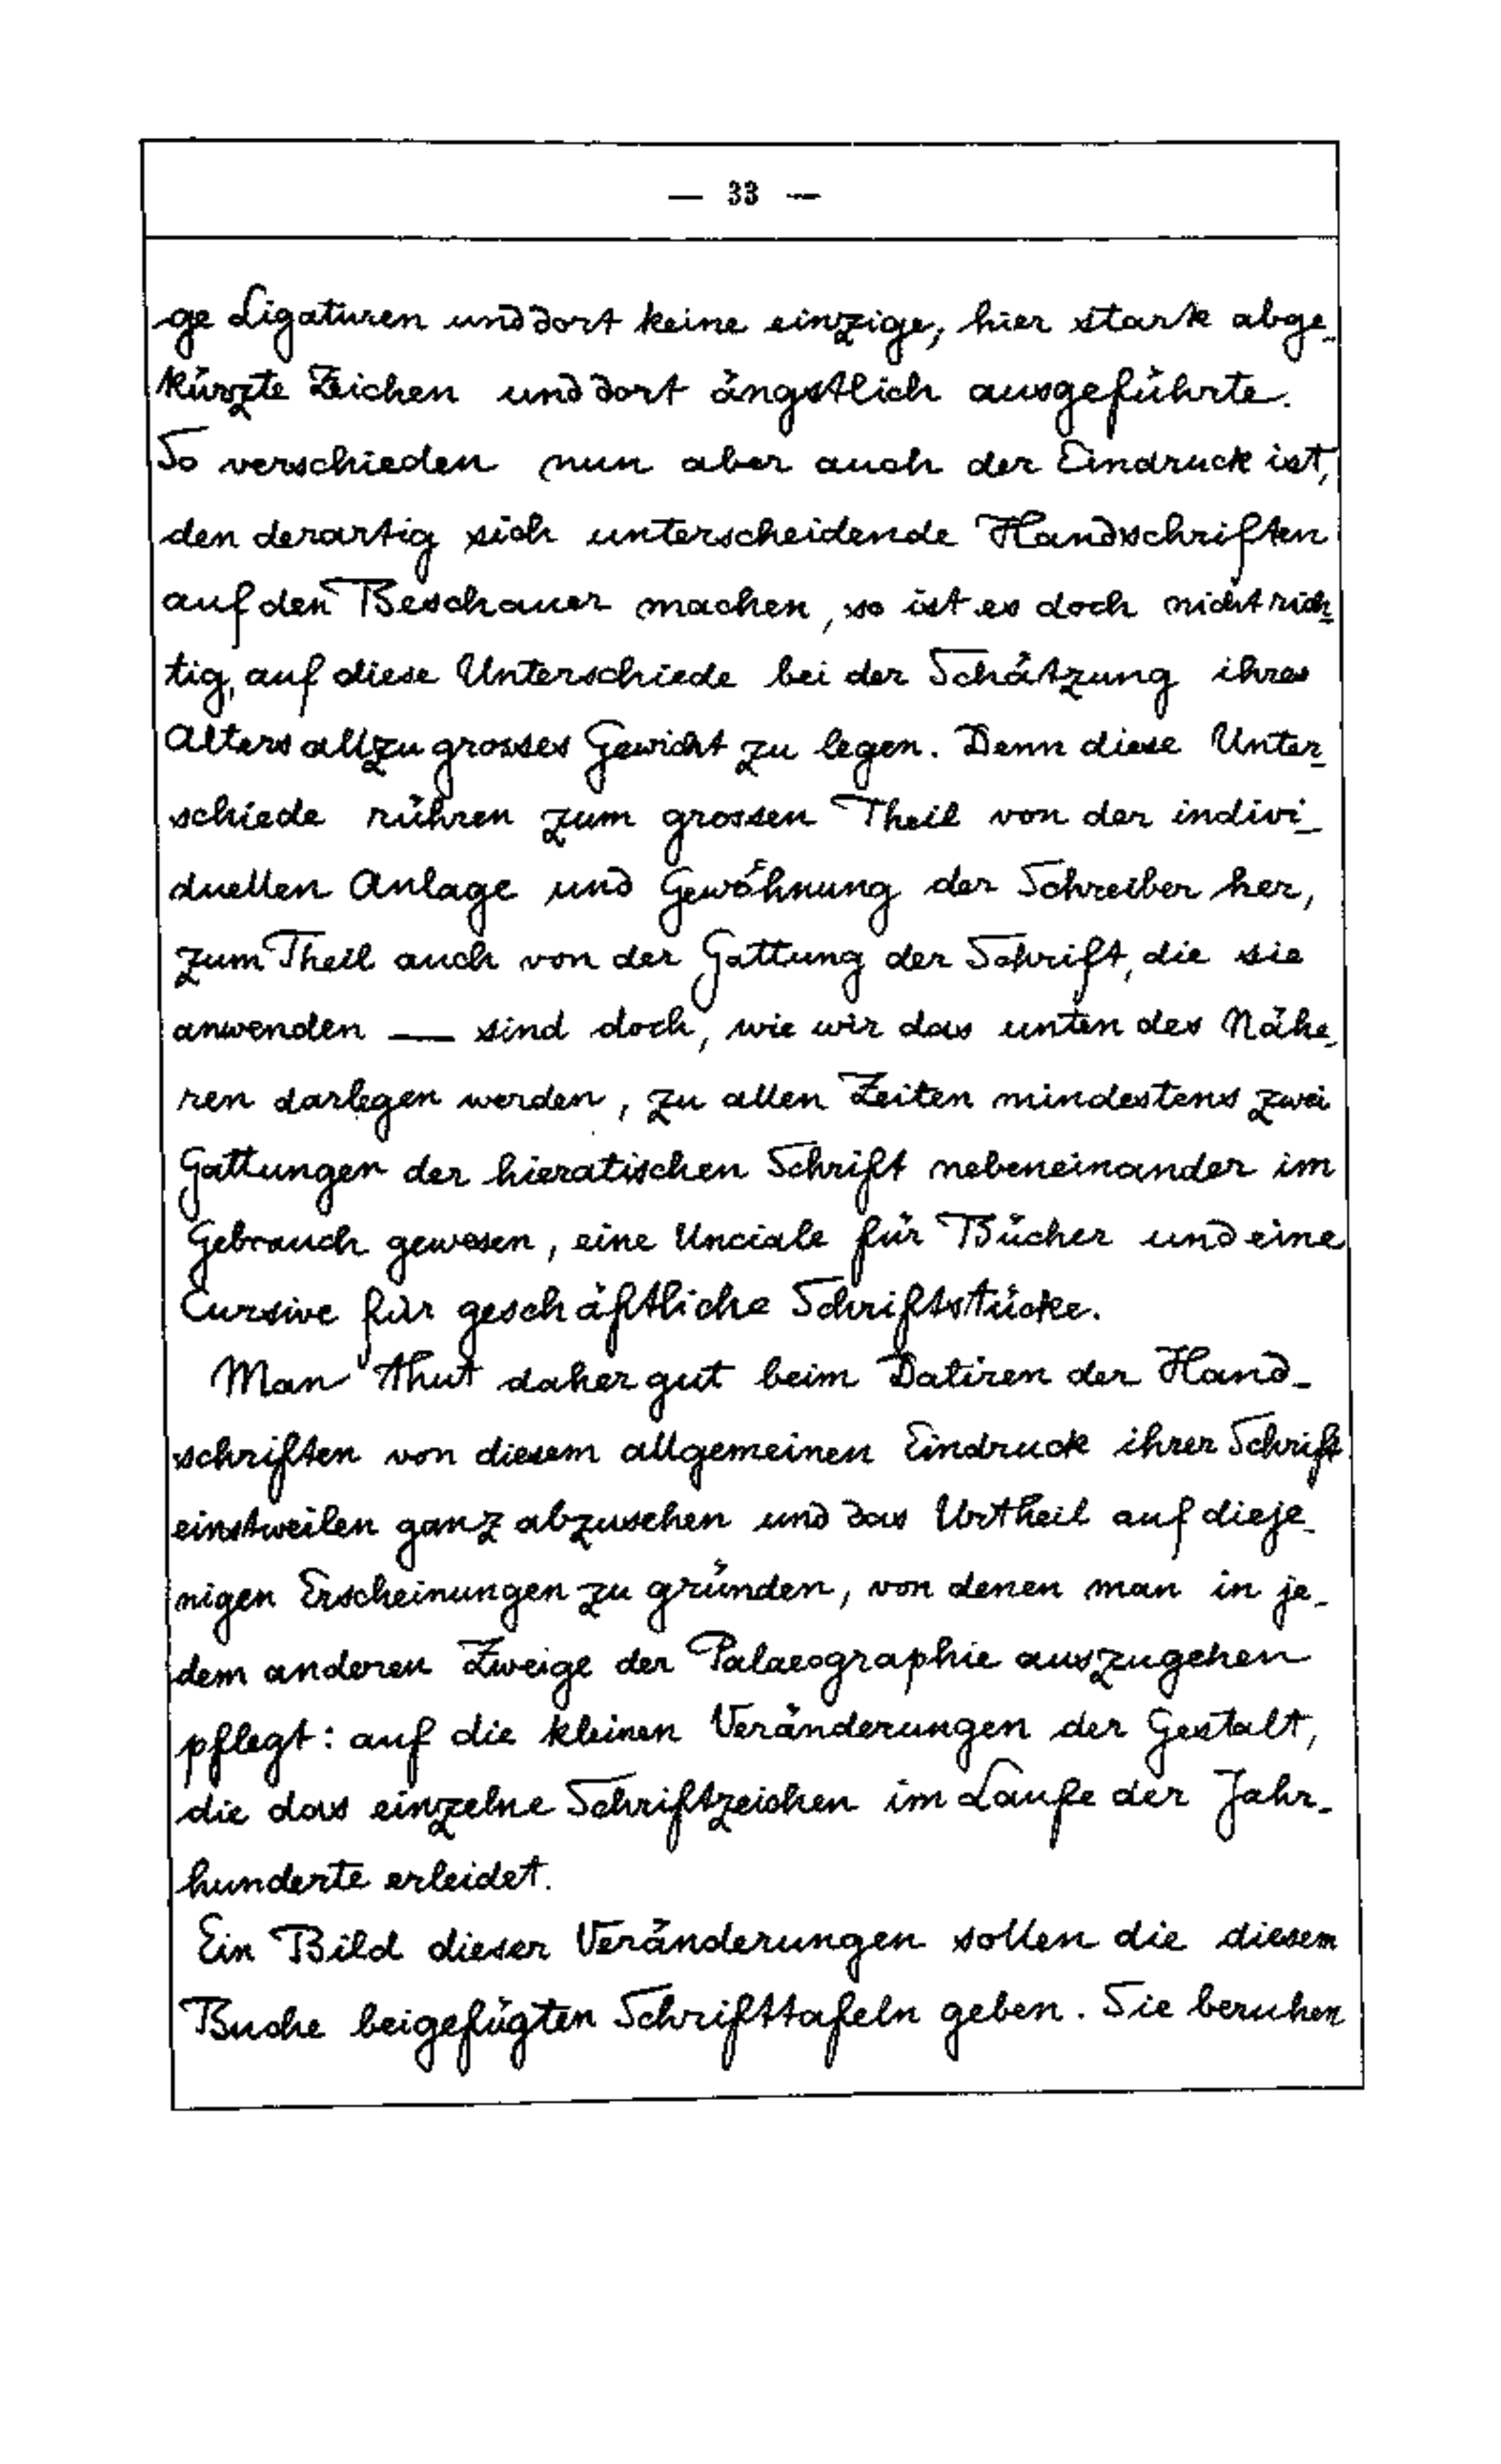 — 33 —
ge Ligaturen und dort keine einzige, hier stark abge-
kürzte Zeichen und dort ängstlich ausgeführte.
So verschieden nun aber auch der Eindruck ist,
den derartig sich unterscheidende Handschriften
auf den Beschauer machen, so ist es doch nicht rich-
tig, auf diese Unterschiede bei der Schätzung ihres
Alters allzu grosses Gewicht zu legen. Denn diese Unter-
schiede rühren zum grossen Theil von der indivi-
duellen Anlage und Gewöhnung der Schreiber her,
zum Theil auch von der Gattung der Schrift, die sie
anwenden — sind doch, wie wir das unten des Nähe-
ren darlegen werden, zu allen Zeiten mindestens zwei
Gattungen der hieratischen Schrift nebeneinander im
Gebrauch gewesen, eine Unciale für Bücher und eine
Cursive für geschäftliche Schriftstücke.
Man thut daher gut beim Datiren der Hand-
schriften von diesem allgemeinen Eindruck ihrer Schrift
einstweilen ganz abzusehen und das Urtheil auf dieje-
nigen Erscheinungen zu gründen, von denen man in je-
dem anderen Zweige der Palaeographie auszugehen
pflegt: auf die kleinen Veränderungen der Gestalt,
die das einzelne Schriftzeichen im Laufe der Jahr-
hunderte erleidet.
Ein Bild dieser Veränderungen sollen die diesem
Buche beigefügten Schrifttafeln geben. Sie beruhen